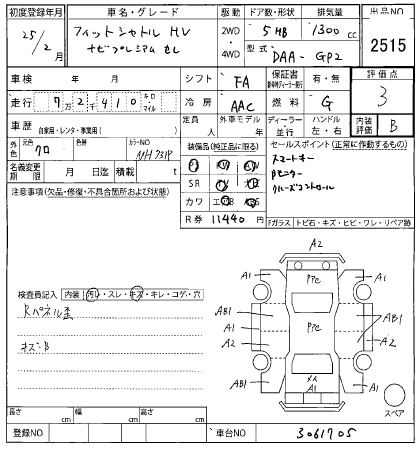 初度登録年月 車名・グレード 駆動 ドア数・形状 排気量 出品NO
25/2月 フィットシャトル HV 2WD 5 HB 1300cc 2515
ナビプレミアムセレ ・4WD 型式 DAA-GP2
車検 年 月 シフト FA 保証書 有・無 評価点
走行 7万2千410 キロ・マイル 冷房 AAC 燃料 G 3
車歴 自家用・レンタ・事業用( ) 定員 人 外車モデル 年 ディーラー・並行 ハンドル 左・右 内装評価 B
外色 元色 クロ 色替 カラーNO NH731P 装備品(純正品に限る) セールスポイント(正常に作動するもの)
名義変更期限 月 日迄 積載 t SR スマートキー
注意事項(欠品・修復・不具合箇所および状態) カワ Bモニター
R券 11440円 クルーズコントロール
Fガラス トビ石・キズ・ヒビ・ワレ・リペア跡
A2
A1 A1
PPC
検査員記入 内装 汚れ・スレ・キズ・キレ・コゲ・穴
Rパネル歪
AB1 AB1
A1 PPC
A2 A2
キズ・B
AB1 A1 A1
スペア
長さ cm 幅 cm 高さ cm
登録NO 車台NO 3061705